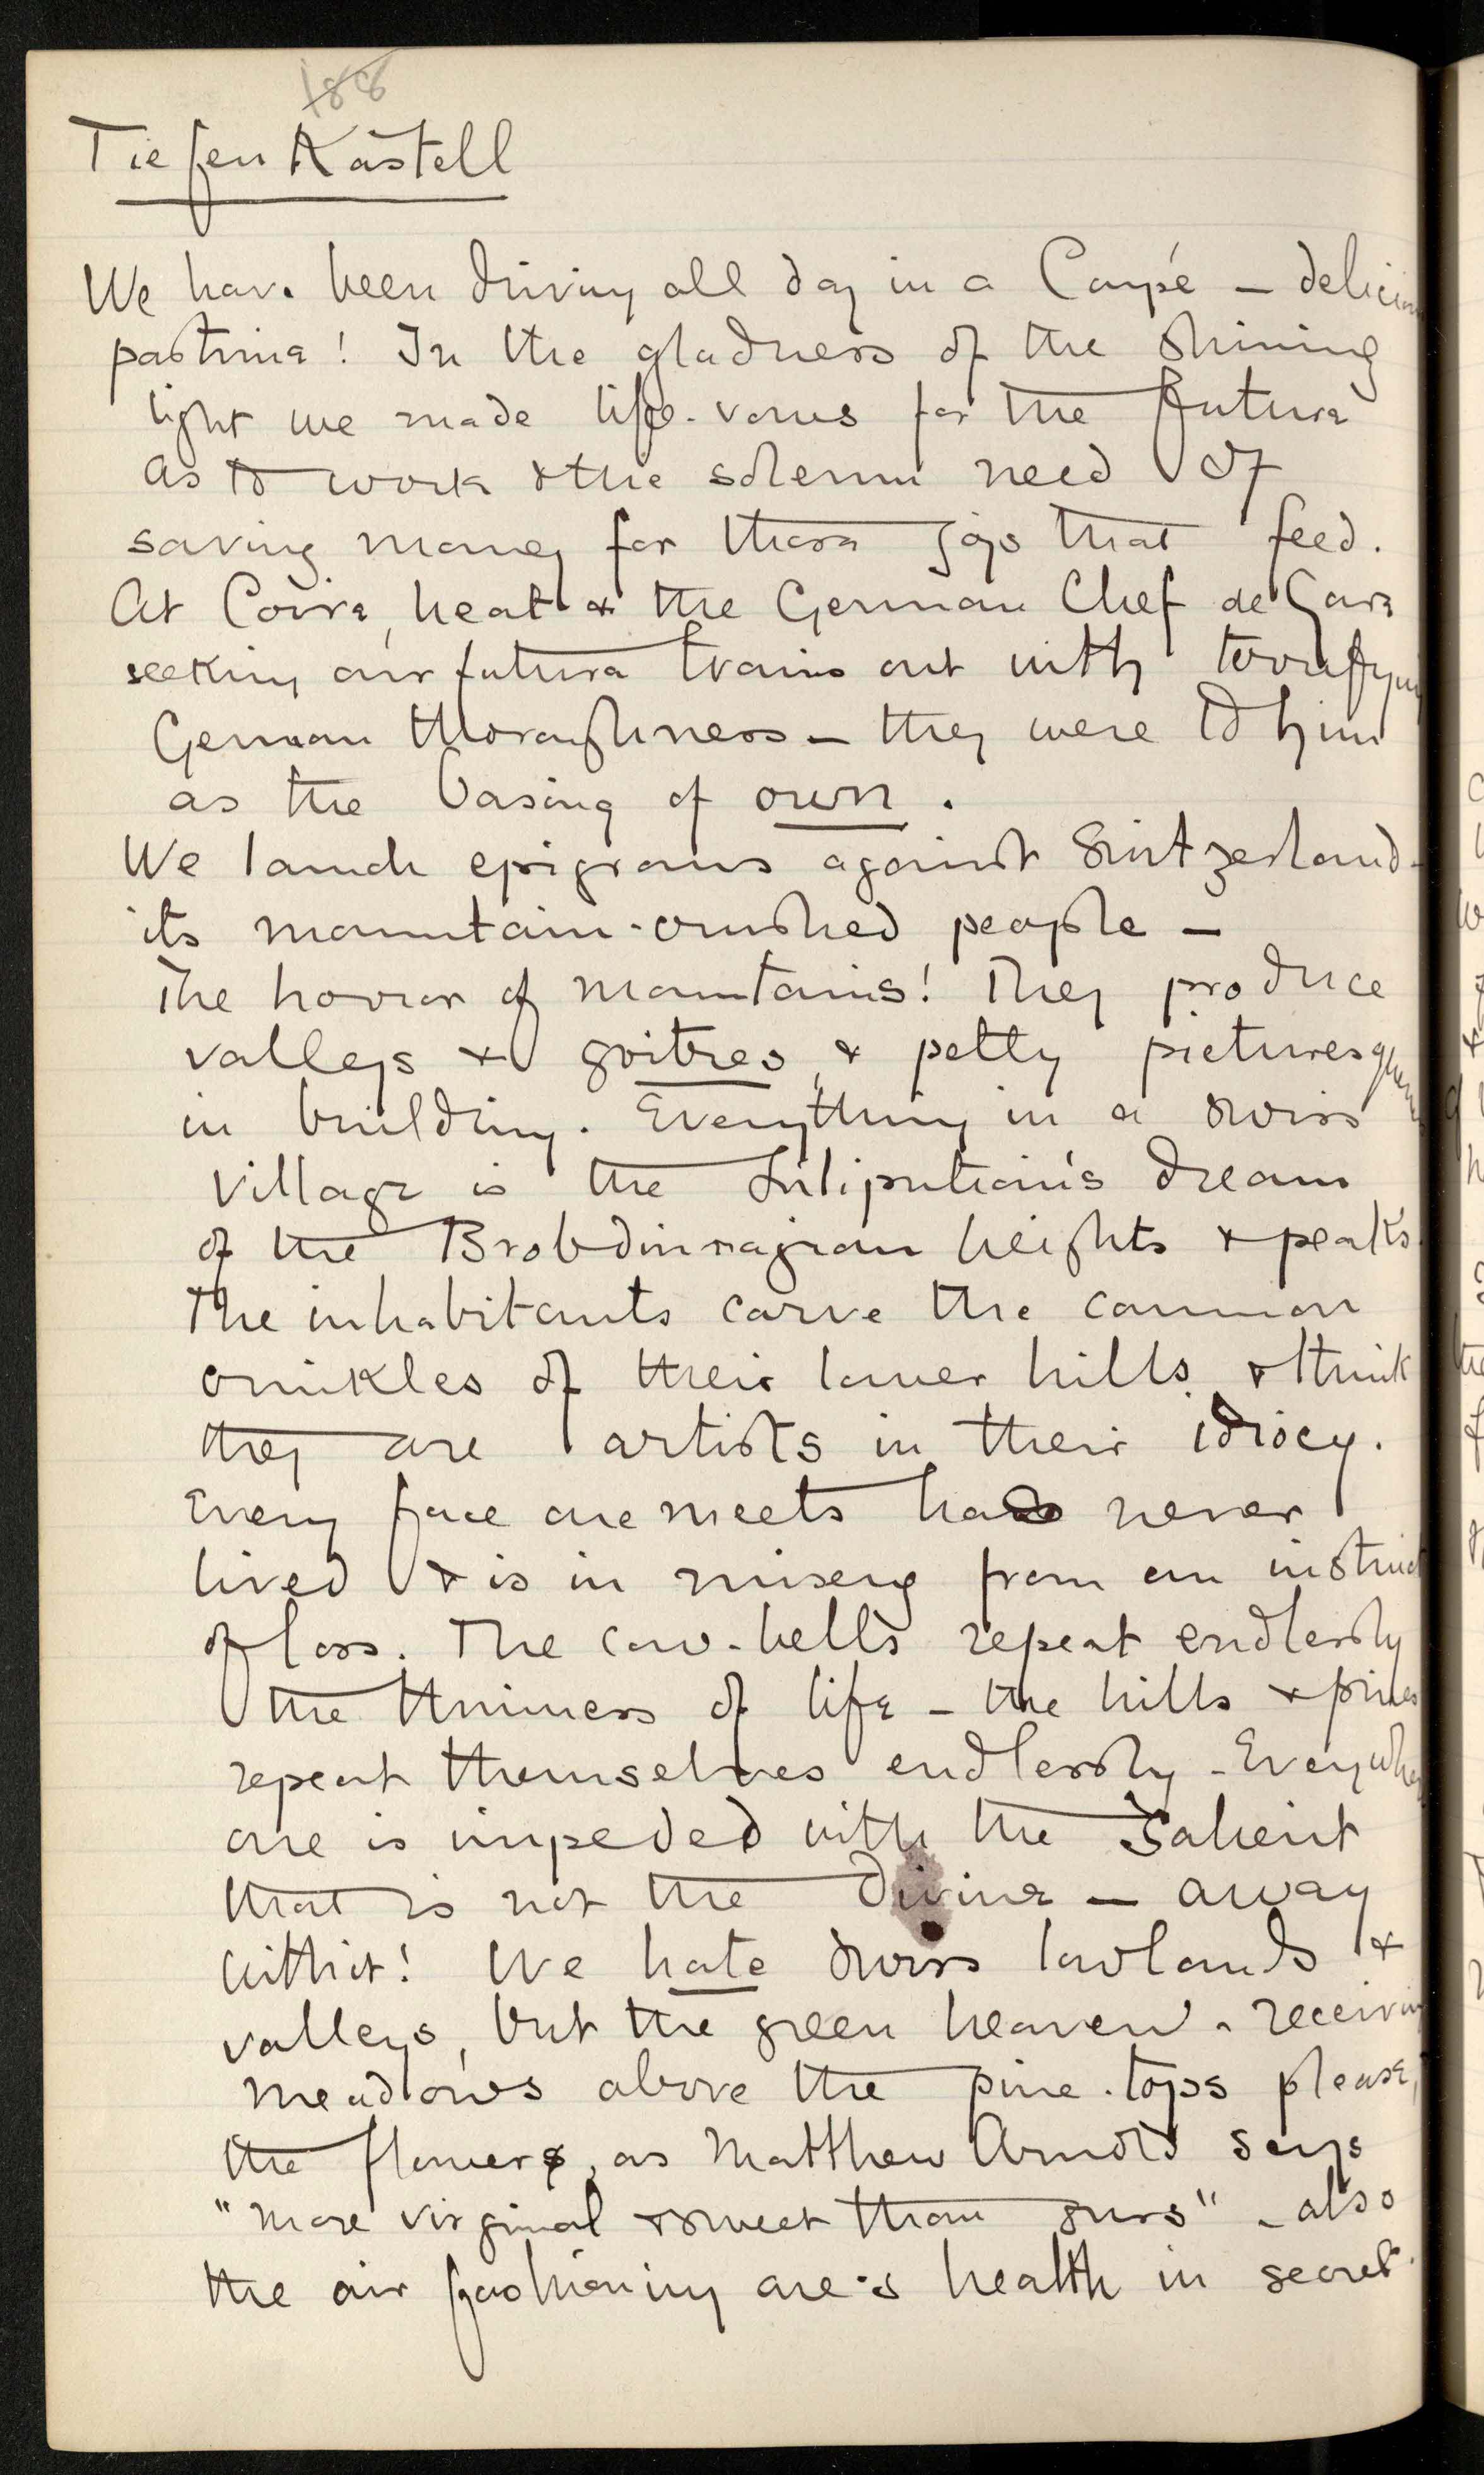 188
Tiefen Kastell
We have been driving all day in a Coupé — delicious
pastime! In the gladness of the shining
light we made life-vows for the future
as to work & the solemn need of
saving money for those joys that feed.
At Coire, heat & the German Chef de Gare
seeking our future trains out with terrifying
German thoroughness — they were to him
as the basing of own.
We launch epigrams against Switzerland —
its mountain-crushed people —
The horror of mountains! They produce
valleys & goitres, & petty picturesqueness
in building. Everything in a Swiss
village is the Liliputian's dream
of the Brobdinnagian heights & peaks.
The inhabitants carve the common
crinkles of their lower hills & think
they are artists in their idiocy.
Every face one meets has never
lived & is in misery from an instinct
of loss. The cow-bells repeat endlessly
the thinness of life — the hills & pines
repeat themselves endlessly — Everywhere
one is impeded with the Salient
that is not the divine — away
with it! We hate Swiss lowlands &
valleys, but the green heaven-receiving
meadows above the pine-tops please,
the flowers, as Matthew Arnold says
"more virginal & sweet than ours" — also
the air fashioning one's health in secret.